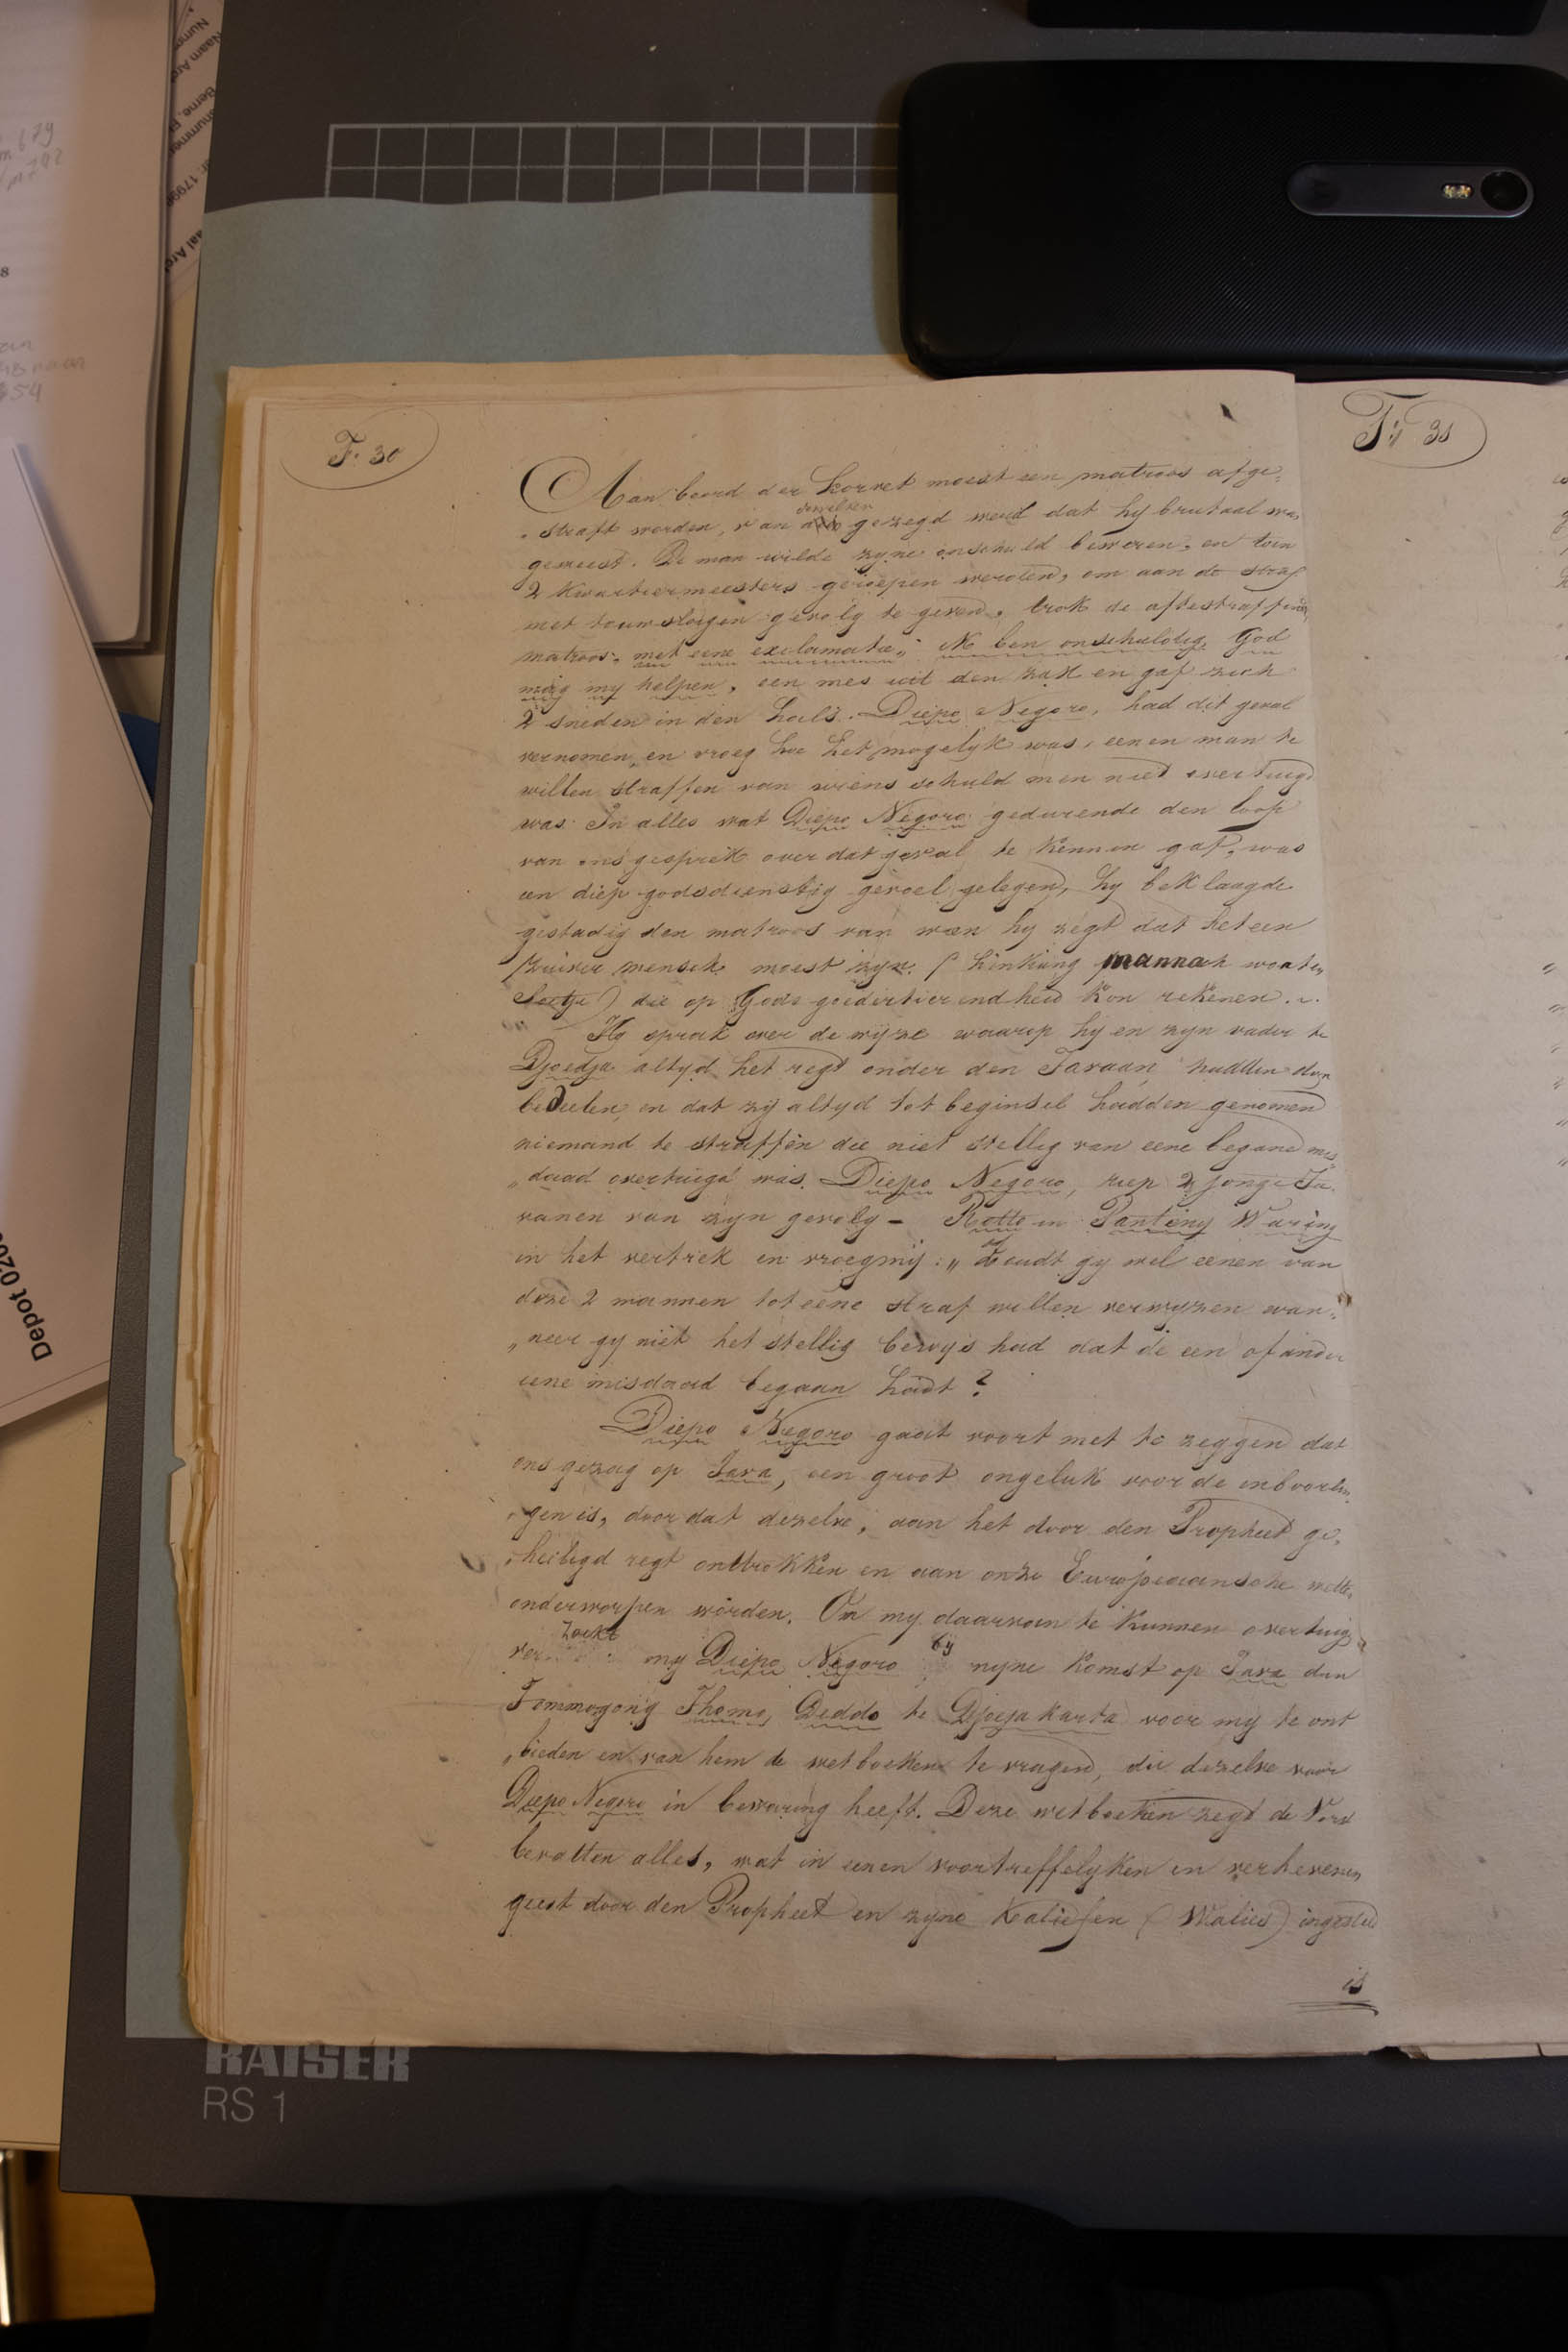 F. 30
Aan boord der Korvet moest een matroos afge,
,straft worden, van denwelken gezegd werd dat hy brutaal was
geweest. De man wilde zyne onschuld beweren, en toen
2 Kwartiermeesters geroepen werden, om aan de straf
met touwslagen gevolg te geven, trok de aftestraffen
matroos, met eene exclamatie: Ik ben onschuldig, God
mag my helpen, een mes uit den zak en gaf zich
2 sneden in den hals. Diepo Negoro, had dit geval
vernomen en vroeg hoe het mogelyk was, eenen man te
willen straffen van wiens schuld men niet overtuigd
was. In alles wat Diepo Negoro gedurende den loop
van ons gesprek over dat geval te kennen gaf, was
een diep godsdienstig gevoel gelegen, hy beklaagde
gestadig den matroos van wien hy zegt dat het een
zuiver mensch moest zyn. ( mannah
Seetje) die op Gods goedertierendheid kon rekenen.
Hy sprak over de wyze waarop hy en zyn vader te
Djoedja altyd het regt onder den Javaan hadden doen
bedeelen, en dat zy altyd tot beginsel hadden genomen
niemand te straffen die niet stellig van eene begane mis
,,daad overtuigd was. Diepo Negoro, riep 2 jonge Ja,
vanen van zyn gevolg – Rotto en Banteng Waring
in het vertrek en vroeg mij: ,,Zoudt gy wel eenen van
deze 2 mannen tot eene straf willen verwyzen wan,,
,,neer gy niet het stellig bewys had dat de een of ander
eene misdaad begaan hadt?
Diepo Negoro gaat voort met te zeggen dat
ons gezag op Java, een groot ongeluk voor de inboorlin
,gen is, door dat dezelve, aan het door den Propheet ge,
,heiligd regt onttrokken en aan onze Europeaansche wetten
onderworpen worden. Om my daarvan te kunnen overtuigen
verzoekt my Diepo Negoro by myne komst op Java den
Tommogong Thomo Deddo te Djocjakarta voor my te ont
,bieden en van hem de wetboeken te vragen, die dezelve voor
Diepo Negoro in bewaring heeft. Deze wetboeken zegt de Vorst
bevatten alles, wat in eenen voortreffelyken en verhevenen
geest door den Propheet en zyne Kaliefen (Walies) ingesteld
is
F. 31
RAISER
RS 1
Depot 020